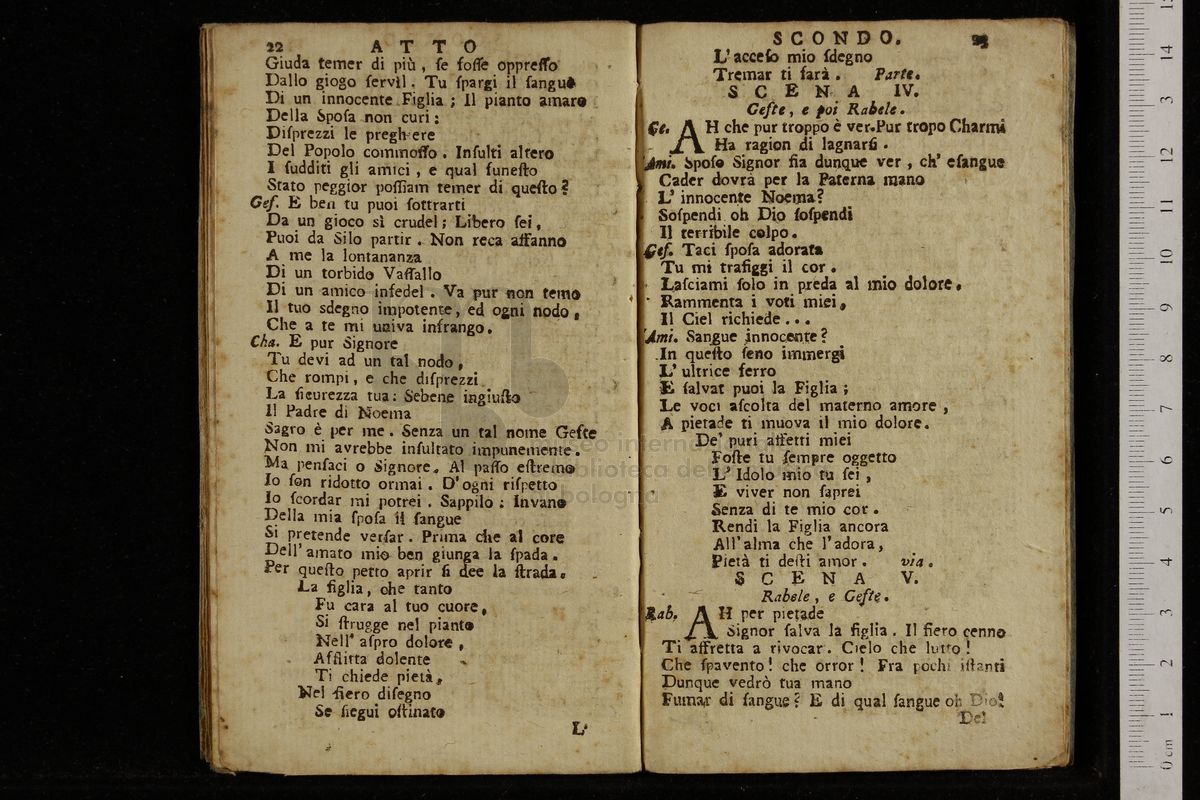 22 ATTO
Giuda temer di più, ſe foſſe oppreſſo
Dallo giogo ſervil. Tu ſpargi il ſangue
Di un innocente Figlia; Il pianto amaro
Della Spoſa non curi:
Diſprezzi le preghere
Del Popolo commoſſo. Inſulti altero
I ſudditi gli amici, e qual funeſto
Stato peggior poſſiam temer di queſto?
Geſ. E ben tu puoi ſottrarti
Da un gioco sì crudel; Libero ſei,
Puoi da Silo partir. Non reca affanno
A me la lontananza
Di un torbido Vaſſallo
Di un amico infedel. Va pur non temo
Il tuo sdegno impotente, ed ogni nodo,
Che a te mi univa infrango.
Cha. E pur Signore
Tu devi ad un tal nodo,
Che rompi, e che diſprezzi
La ſicurezza tua: Sebene ingiuſto
Il Padre di Noema
Sagro è per me. Senza un tal nome Geſte
Non mi avrebbe inſultato impunemente.
Ma penſaci o Signore. Al paſſo eſtremo
Io ſon ridotto ormai. D'ogni riſpetto
Io ſcordar mi potrei. Sappilo: Invano
Della mia ſpoſa il ſangue
Si pretende verſar. Prima che al core
Dell'amato mio ben giunga la ſpada.
Per queſto petto aprir ſi dee la ſtrada.
La figlia, che tanto
Fu cara al tuo cuore,
Si ſtrugge nel pianto
Nell' aſpro dolore,
Afflitta dolente
Ti chiede pietà,
Nel fiero diſegno
Se ſiegui oſtinato
L'
SCONDO. 23
L'acceſo mio ſdegno
Tremar ti farà. Parte.
SCENA IV.
Geſte, e poi Rabele.
Ge. AH che pur troppo è ver. Pur tropo Charmi
Ha ragion di lagnarſi.
Ami. Spoſo Signor ſia dunque ver, ch' eſangue
Cader dovrà per la Paterna mano
L' innocente Noema?
Soſpendi oh Dio ſoſpendi
Il terribile colpo.
Geſ. Taci ſpoſa adorata
Tu mi trafiggi il cor.
Laſciami ſolo in preda al mio dolore.
Rammenta i voti miei,
Il Ciel richiede...
Ami. Sangue innocente?
In queſto ſeno immergi
L' ultrice ferro
E ſalvat puoi la Figlia;
Le voci aſcolta del materno amore,
A pietade ti muova il mio dolore.
De' puri affetti miei
Foſte tu ſempre oggetto
L' Idolo mio tu ſei,
E viver non ſaprei
Senza di te mio cor.
Rendi la Figlia ancora
All'alma che l'adora,
Pietà ti deſti amor. via.
SCENA V.
Rabele, e Geſte.
Rab. AH per pietade
Signor ſalva la figlia. Il fiero cenno
Ti affretta a rivocar. Cielo che lutto!
Che ſpavento! che orror! Fra pochi iſtanti
Dunque vedrò tua mano
Fumar di ſangue? E di qual ſangue oh Dio!
Del